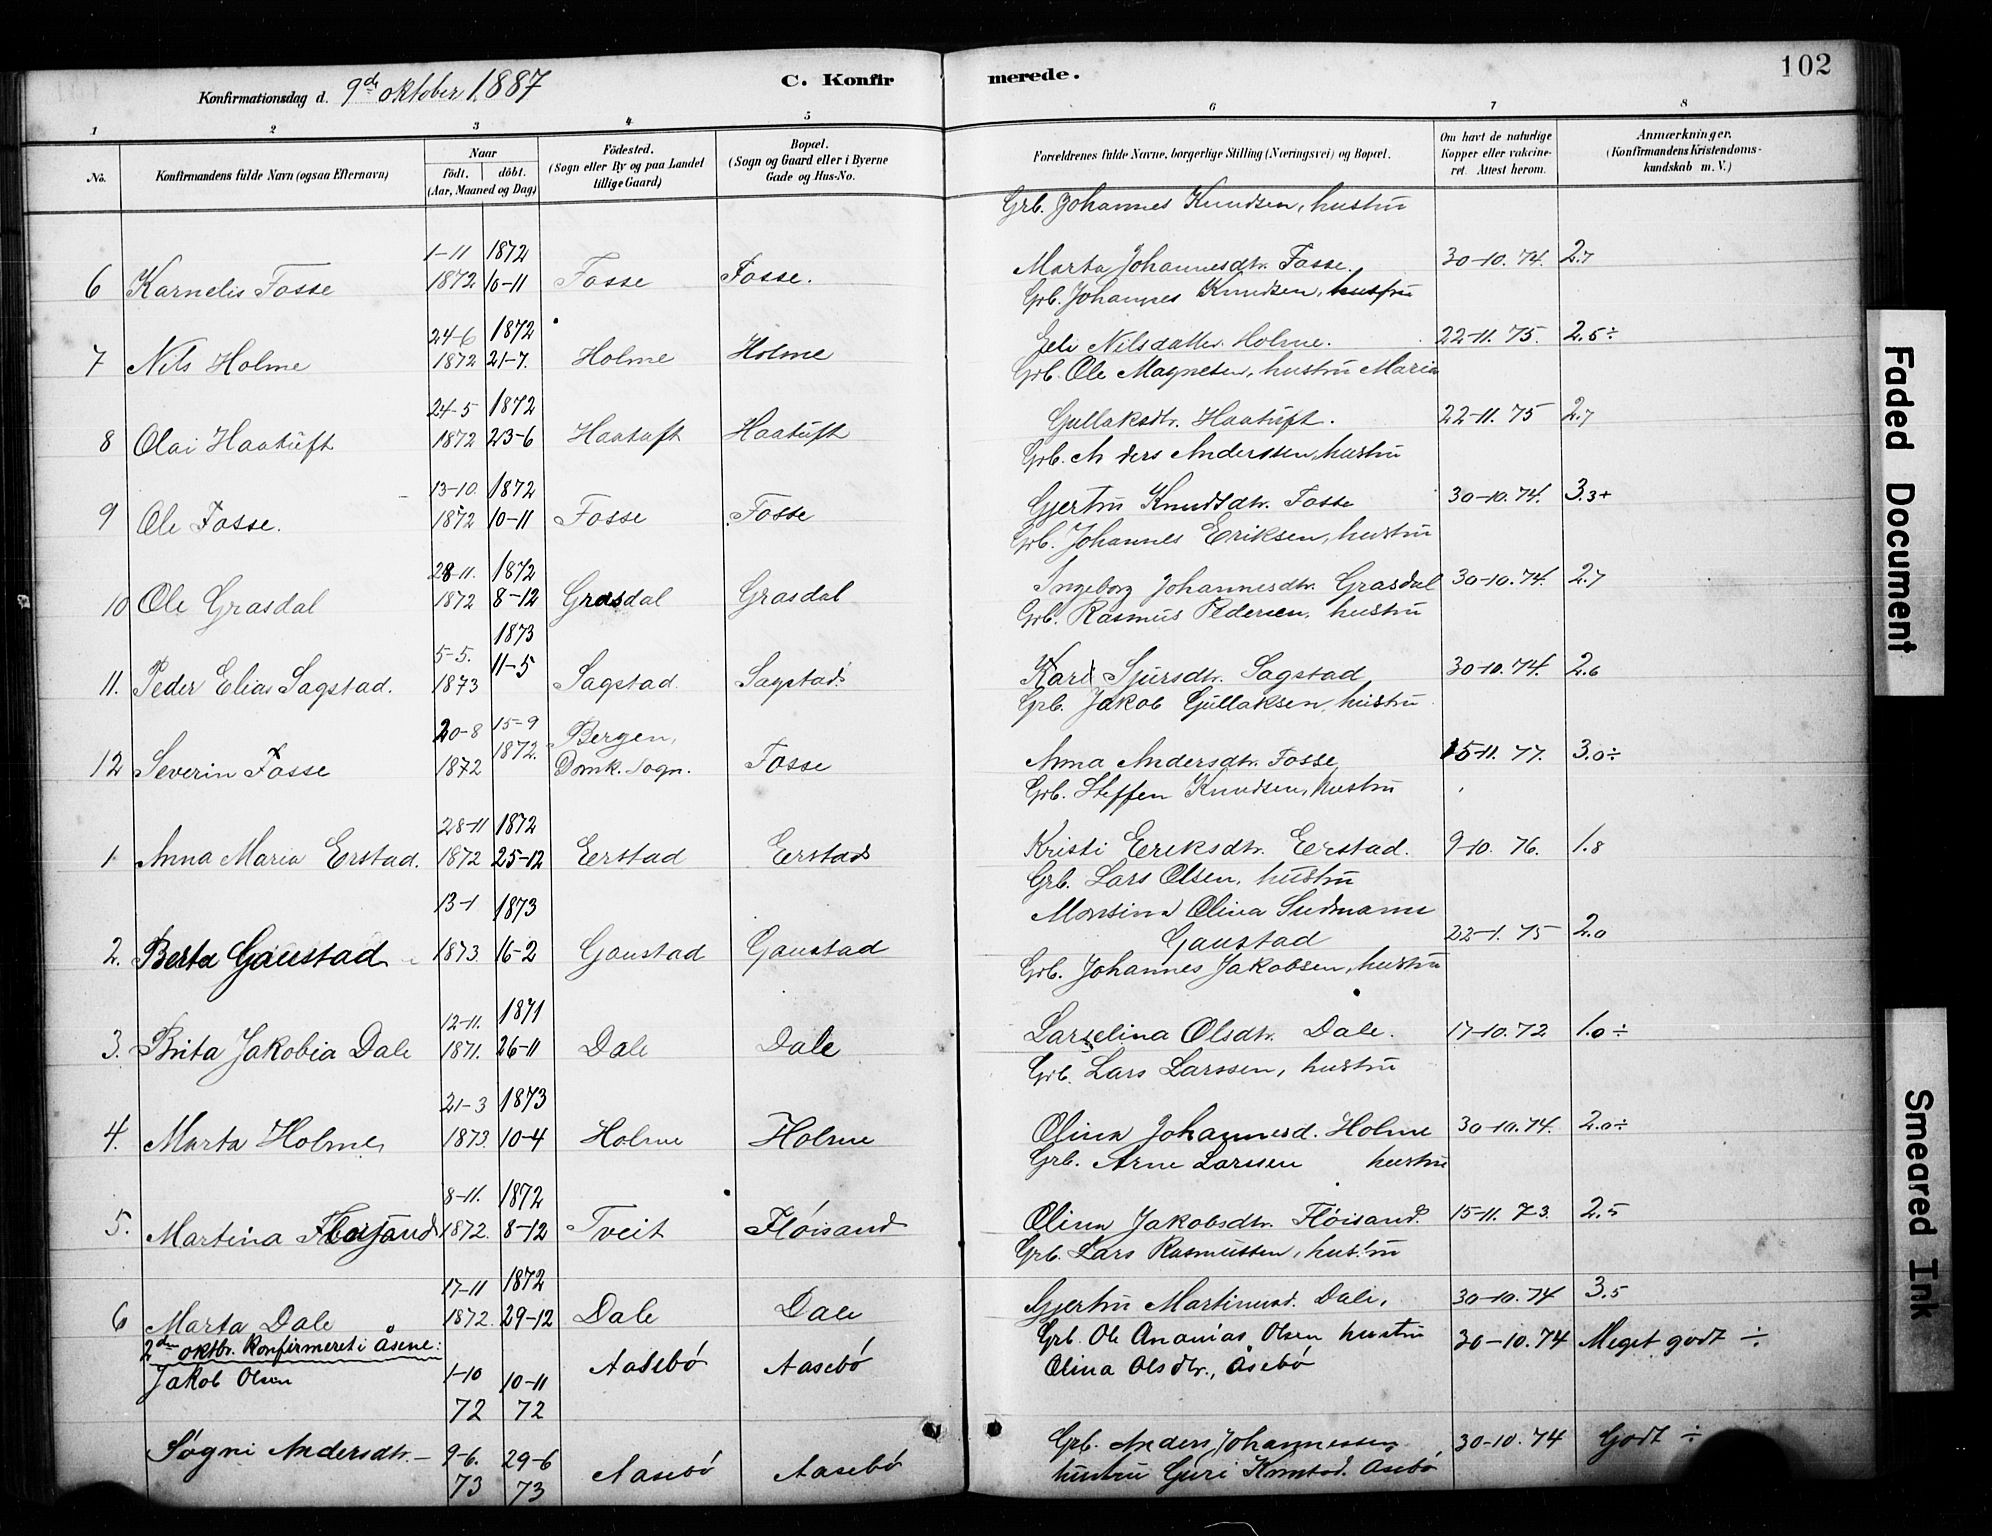 102
Konfirmationsdag d. 9de oktober 1887
C. Konfirmerede.
1 2 3 4 5 6 7 8
No.
Konfirmandens fulde Navn (ogsaa Efternavn)
Naar
födt. döbt.
(Aar, Maaned og Dag)
Födested.
(Sogn eller By og paa Landet
tillige Gaard)
Bopæl.
(Sogn og Gaard eller i Byerne
Gade og Hus-No.
Forældrenes fulde Navne, borgerlige Stilling (Næringsvei) og Bopæl.
Om havt de naturlige
Kopper eller vakcine-
ret. Attest herom.
Anmærkninger.
(Konfirmandens Kristendoms-
kundskab m. V.)
Grb. Johannes Knudsen, hustru
1-11 1872
6 Karnelis Fosse 1872 10-11 Fosse Fosse. Marta Johannesdtr. Fosse. 30-10.74. 2.7
Grb. Johannes Knudsen, hustru
24-6 1872
7 Nils Holme 1872 21-7. Holme Holme Eli Nilsdatter Holme. 22-11.75. 2.5÷
Grb. Ole Magnesen, hustru Maria
24-5 1872
8 Olai Haatuft 1872 23-6 Haatuft Haatuft Gullaksdtr. Haatuft. 22-11.75 2.7
Grb. Anders Anderssen, hustru
13-10. 1872
9 Ole Fosse. 1872 10-11 Fosse Fosse Gjertru Knudsdtr. Fosse 30-10.74. 3.3+
Grb. Johannes Eriksen, hustru
28-11. 1872
10 Ole Grasdal 1872 8-12 Grasdal Grasdal Ingeborg Johannesdtr. Grasdal 30-10.74. 2.7
Grb. Rasmus Pedersen, hustru
5-5. 1873
11. Peder Elias Sagstad. 1873 11-5 Sagstad. Sagstad Kari Sjursdtr. Sagstad 30-10.74. 2.6
Grb. Jakob Gullaksen, hustru
20-8 15-9 Bergen,
12 Severin Fosse 1872 1872. Domk. Sogn. Fosse Anna Andersdtr. Fosse 15-11.77. 3.0÷
Grb. Steffen Knudsen, hustru
28-11 1872
1 Anna Maria Erstad. 1872 25-12 Eerstad Eerstad Kristi Eeriksdtr. Eerstad. 9-10.76. 1.8
Grb. Lars Olsen, hustru
13-1 1873 Monsina Olina Sudmann
2. Berta Gaustad 1873. 16-2 Gaustad Gaustad Gaustad 22-1.75 2.0
Grb. Johannes Jakobsen, hustru
12-11. 1871
3. Brita Jakobia Dale 1871. 26-11 Dale Dale Larselina Olsdtr. Dale. 17-10.72 1.0÷
Grb. Lars Larssen, hustru
21-3 1873
4. Marta Holme 1873. 10-4 Holme Holme Olina Johannesd. Holme 30-10.74. 2.0÷
Grb. Arne Larssen hustru
8-11. 1872
5. Martina 1872. 8-12 Tveit Flöisand Olina Jakobsdtr. Flöisand. 15-11.73. 2.5
Grb. Lars Rasmussen, hustru
17-11 1872
6 Marta Dale 1872. 29-12 Dale Dale Gjertru Martinusd. Dale, 30-10.74 3.5
2den oktbr. konfirmeret i Åsene:
Grb. Ole Ananias Olsen hustru 30-10.74 Meget godt ÷
Jakob Olsen 1-10 72 10-11 72 Aasebö Aasebö Olina Olsdtr., Åsebö
Grb. Anders Johannessen 30-10.74 Godt ÷
Sögni Andersdtr.- 9-6. 73 29-6 73 Aasebö Aasebö hustru Guri Knutsd. Åsebö
Faded Document
Smeared Ink